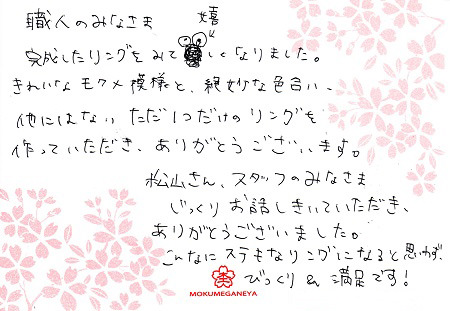 職人のみなさま
嬉
完成したリングをみて しくなりました。
きれいなモクメ模様と、絶妙な色合い、
他にはない ただ1つだけのリングを
作っていただき、ありがとうございます。
松山さん、スタッフのみなさま
じっくりお話しきいていただき、
ありがとうございました。
こんなにステキなリングになると思わず、
びっくり&満足です!
MOKUMEGANEYA